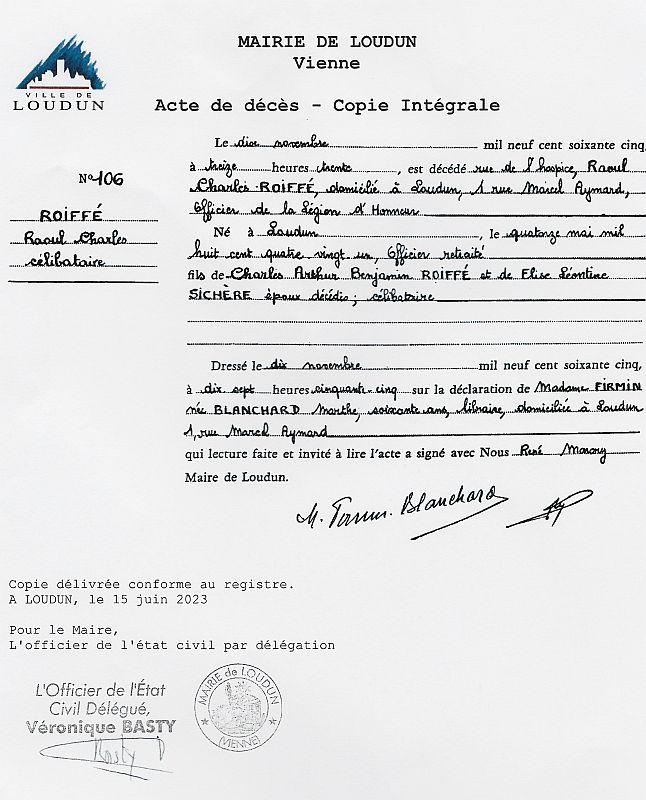 MAIRIE DE LOUDUN
Vienne
VILLE DE
LOUDUN
Acte de décès - Copie Intégrale
N°106
ROIFFÉ
Raoul Charles
célibataire
Le dix novembre mil neuf cent soixante cinq,
à treize heures trente, est décédé rue de l'hospice, Raoul
Charles ROIFFÉ, domicilié à Loudun, 1 rue Marcel Aymard,
Officier de la Légion d'Honneur
Né à Loudun, le quatorze mai mil
huit cent quatre vingt un, Officier retraité
fils de Charles Arthur Benjamin ROIFFÉ et de Elise Léontine
SICHÈRE époux décédés; célibataire
Dressé le dix novembre mil neuf cent soixante cinq,
à dix sept heures cinquante-cinq sur la déclaration de Madame FIRMIN
née BLANCHARD Marthe, soixante ans, libraire, domiciliée à Loudun
1, rue Marcel Aymard
qui lecture faite et invité à lire l'acte a signé avec Nous René Monory
Maire de Loudun.
M. Blanchard
Copie délivrée conforme au registre.
A LOUDUN, le 15 juin 2023
Pour le Maire,
L'officier de l'état civil par délégation
L'Officier de l'État
Civil Délégué,
Véronique BASTY
Basty
MAIRIE DE LOUDUN
(VIENNE)